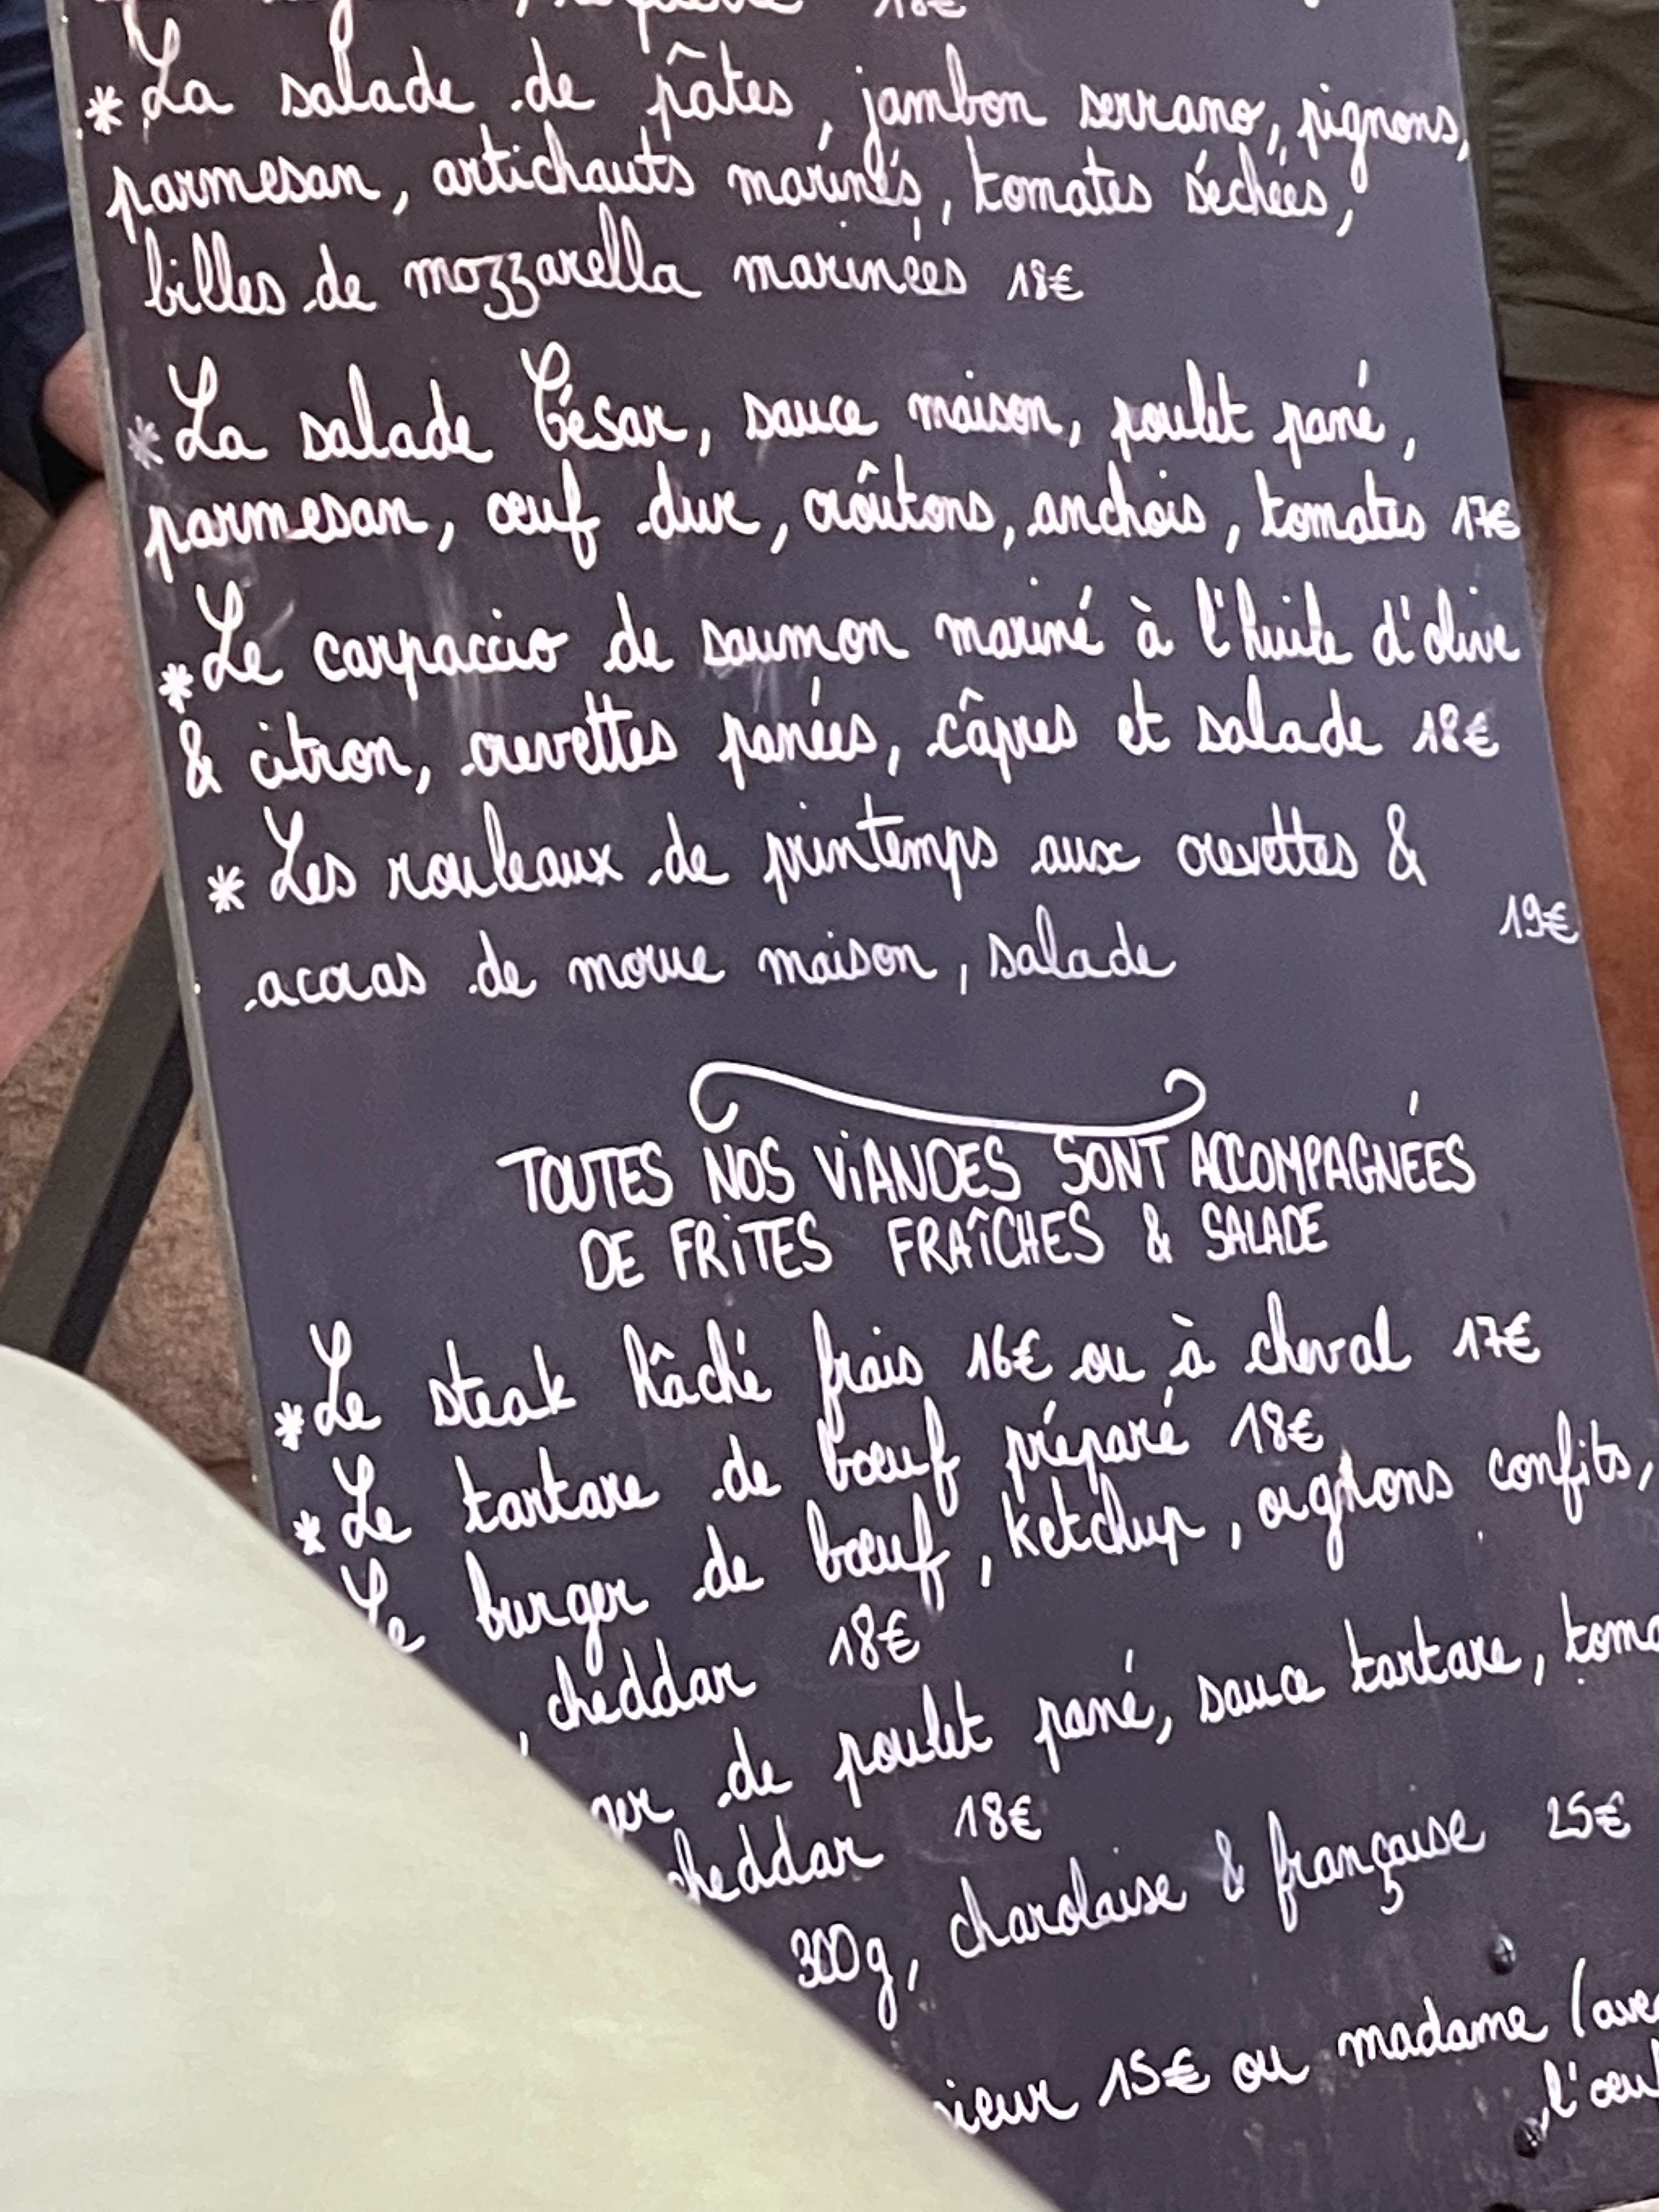 18€
*La salade de pâtes, jambon serrano, pignons,
parmesan, artichauts marinés, tomates séchées,
billes de mozzarella marinées 18€
*La salade César, sauce maison, poulet pané,
parmesan, œuf dur, croûtons, anchois, tomates 17€
*Le carpaccio de saumon mariné à l'huile d'olive
& citron, crevettes panées, câpres et salade 18€
*Les rouleaux de printemps aux crevettes &
acras de morue maison, salade 19€
TOUTES NOS VIANDES SONT ACCOMPAGNÉES
DE FRITES FRAÎCHES & SALADE
*Le steak hâché frais 16€ ou à cheval 17€
*Le tartare de bœuf préparé 18€
Le burger de bœuf, ketchup, oignons confits,
, cheddar 18€
ger de poulet pané, sauce tartare, toma
cheddar 18€
300g, charolaise & française 25€
sieur 15€ ou madame (avec
l'œuf